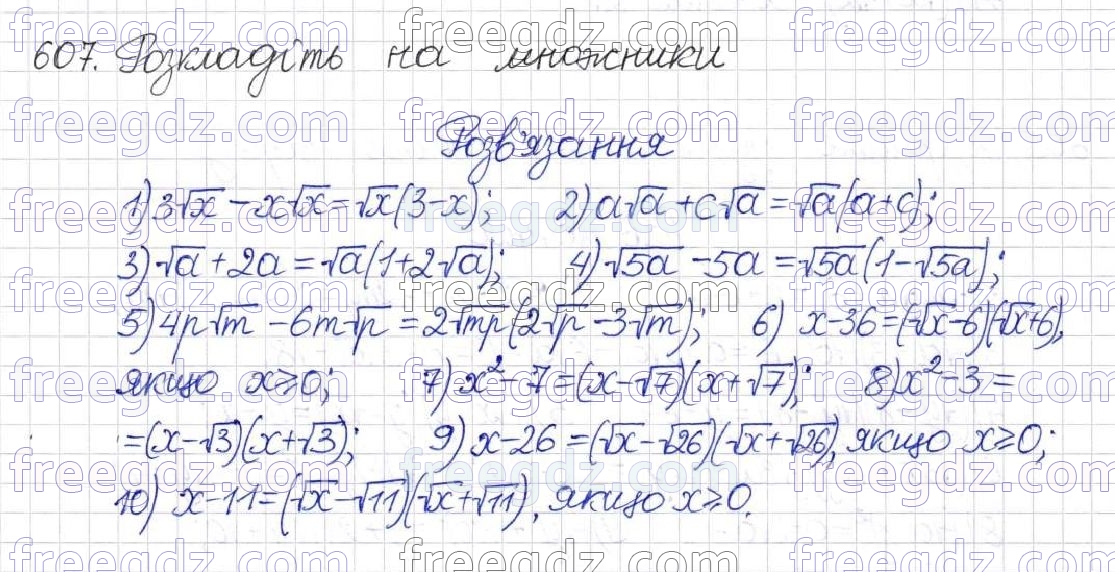 607. Розкладіть на множники
Розв'язання
1) 3√x − x√x = √x(3−x); 2) a√a + c√a = √a(a+c);
3) √a + 2a = √a(1+2√a); 4) √5a − 5a = √5a(1−√5a);
5) 4p√m − 6m√p = 2√mp(2√p − 3√m); 6) x−36 = (√x−6)(√x+6),
якщо x⩾0; 7) x² − 7 = (x−√7)(x+√7); 8) x² − 3 =
= (x−√3)(x+√3); 9) x−26 = (√x−√26)(√x+√26), якщо x⩾0;
10) x−11 = (√x−√11)(√x+√11), якщо x⩾0.
freegdz.com